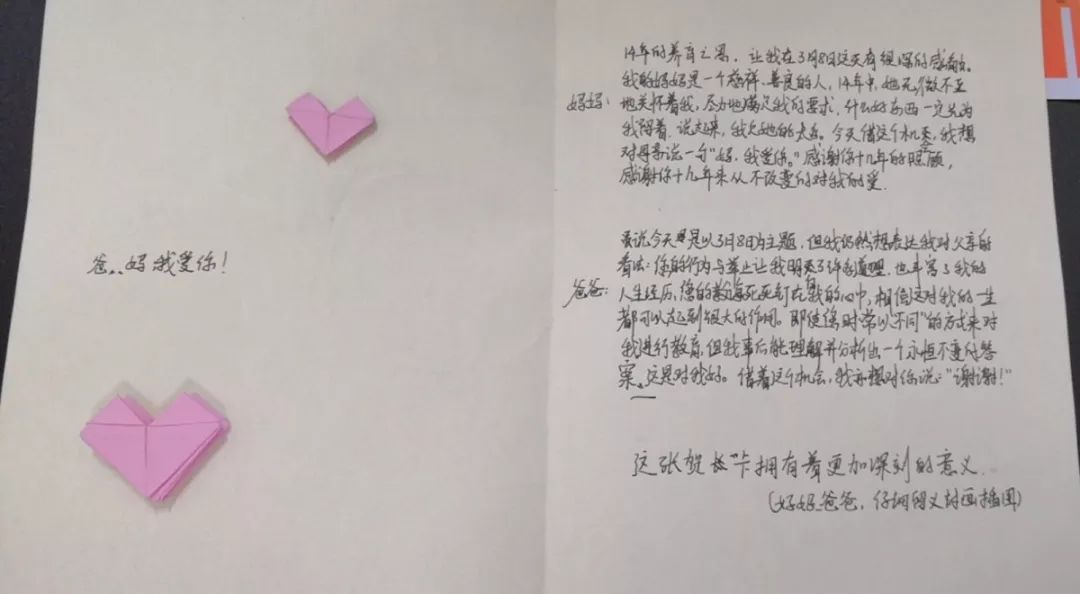 爸、妈我爱你！
14年的养育之恩，让我在3月8日这天有很深的感触。
我的妈妈是一个慈祥、善良的人，14年中，她无微不至
妈妈：地关怀着我，尽力地满足我的要求，什么好东西一定先为
我留着，说起来，我欠她的太多。今天借这个机会，我想
对母亲说一句“妈，我爱你。”感谢你十几年的照顾，
感谢你十几年来从不改变的对我的爱.
虽说今天是以3月8日为主题，但我仍然想表达我对父亲的
看法：你的行为与举止让我明白了许多道理，也丰富了我的
爸爸：人生经历，您的教诲死死钉在我的心中，相信这对我的一生
都可以起到很大的作用。即使您时常以“不同”的方式来对
我进行教育，但我事后能理解并分析出一个永恒不变的答
案，这是对我好。借着这个机会，我亦想对你说：“谢谢！”
这张贺卡拥有着更加深刻的意义.
(妈妈爸爸，仔细的义封画插图)